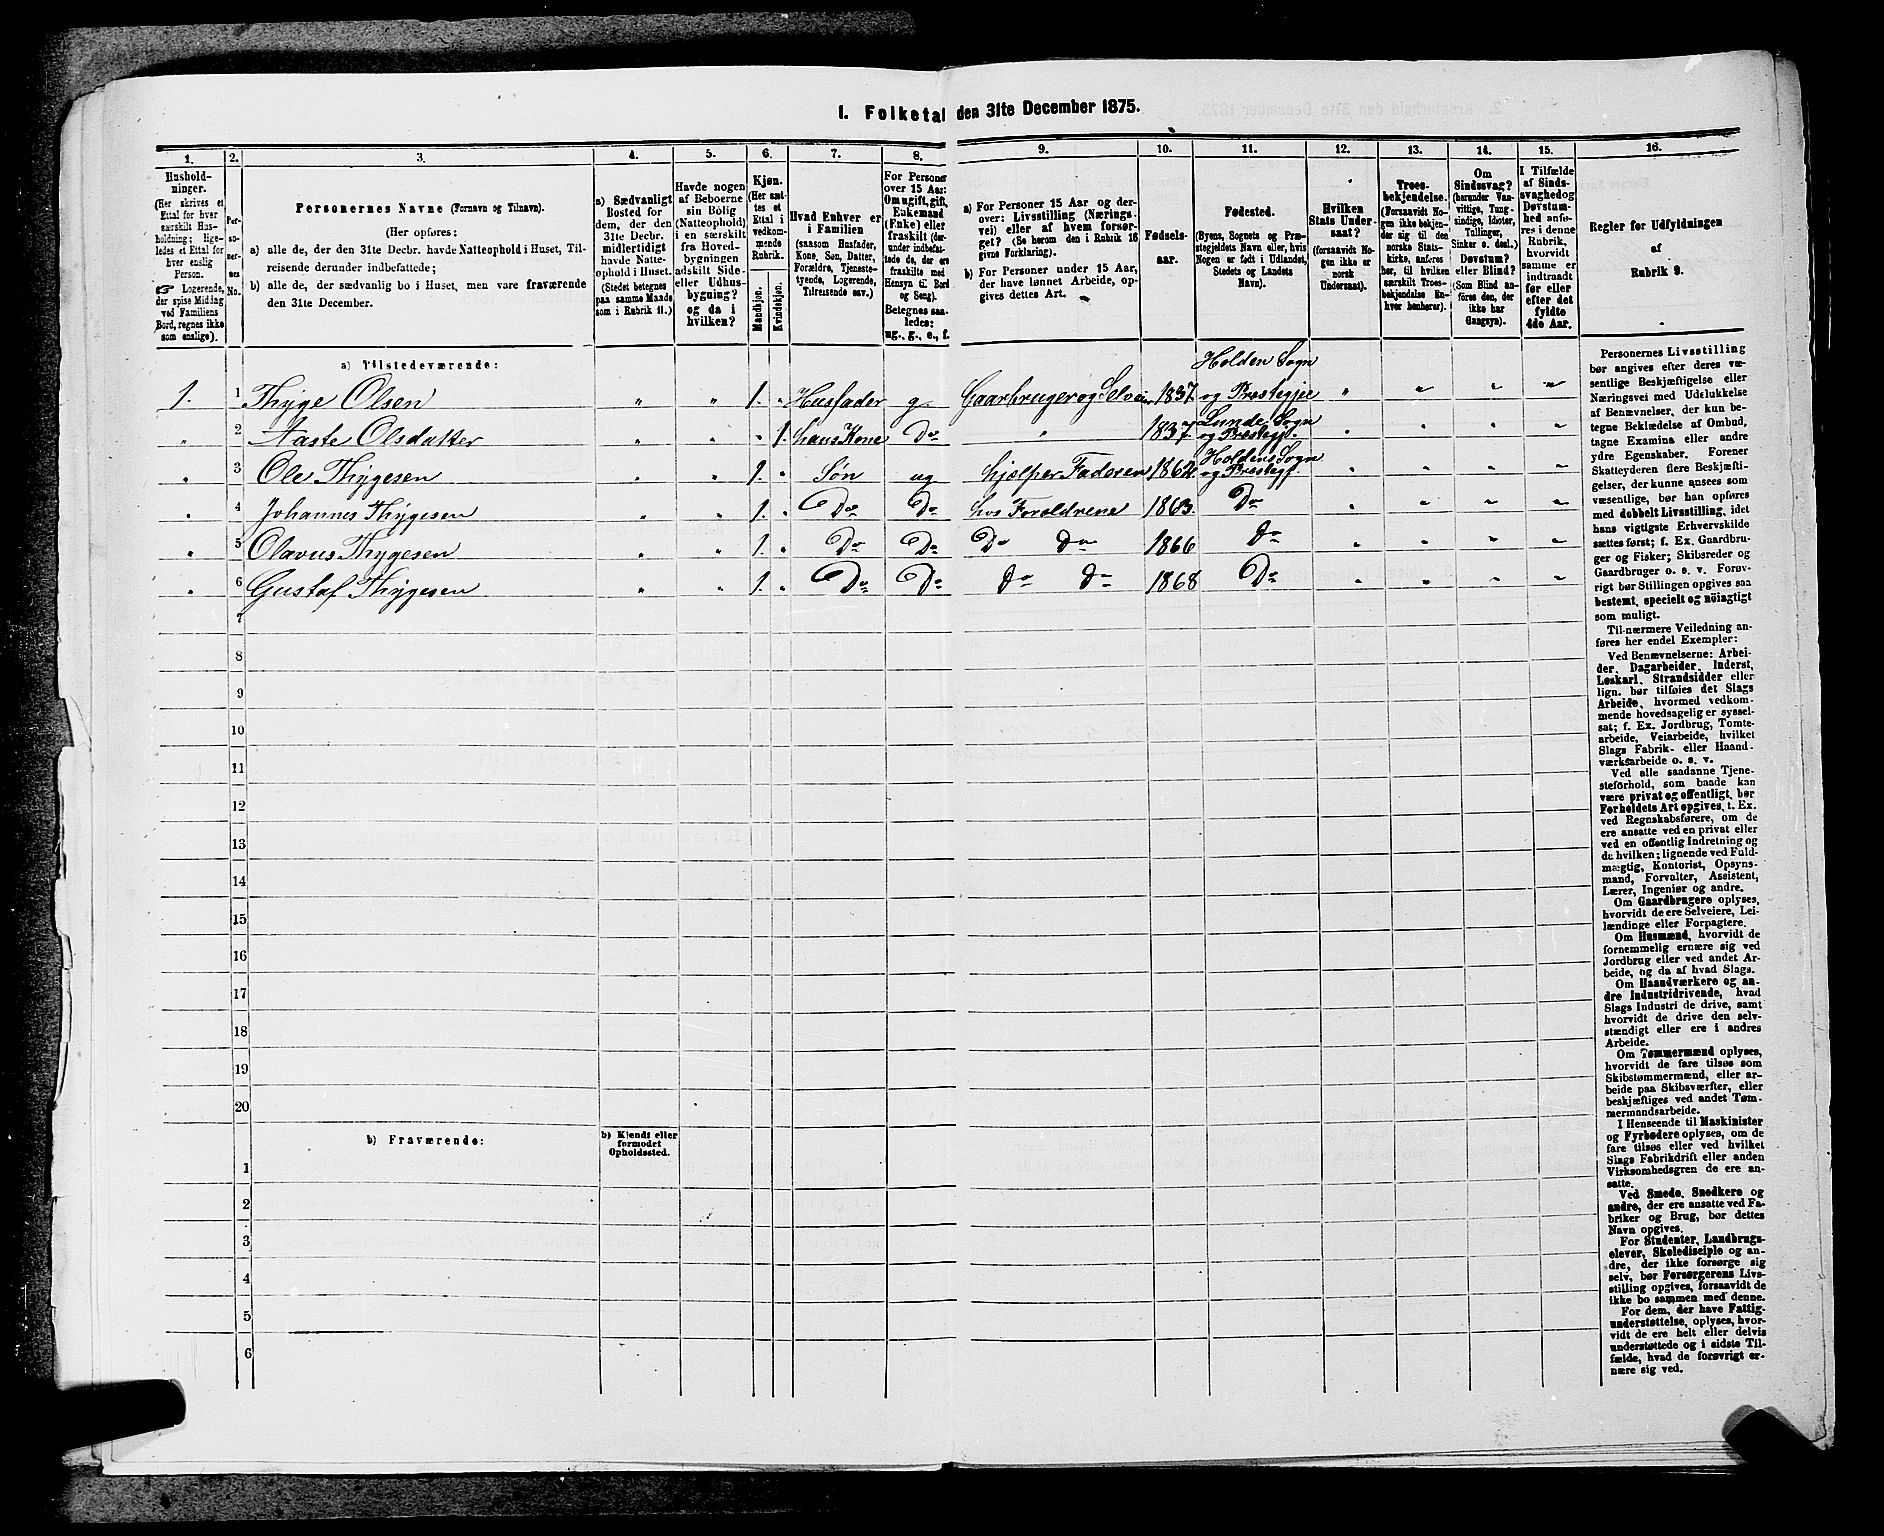 I. Folketal den 31te December 1875.
1. 2. 3. 4. 5. 6. 7. 8. 9. 10. 11. 12. 13. 14. 15. 16.
Hushold-
ninger.
(Her skrives et
Ettal for hver
særskilt Hus-
holdning; lige-
ledes et Ettal for
hver enslig
Person.
☞ Logerende,
der spise Middag
ved Familiens
Bord, regnes ikke
som enslige).
Per-
so-
ner-
nes
No.
Personernes Navne (Fornavn og Tilnavn).
(Her opføres:
a) alle de, der den 31te Decbr. havde Natteophold i Huset, Til-
reisende derunder indbefattede;
b) alle de, der sædvanlig bo i Huset, men vare fraværende
den 31te December.
a) Sædvanligt
Bosted for
dem, der den
31te Decbr.
midlertidigt
havde Natte-
ophold i Huset.
(Stedet betegnes
paa samme Maade
som i Rubrik 11.)
Havde nogen
af Beboerne
sin Bolig
(Natteophold)
i en særskilt
fra Hoved-
bygningen
adskilt Side-
eller Udhus-
bygning?
og da i
hvilken?
Kjøn.
(Her sæt-
tes et
Ettal i
vedkom-
mende
Rubrik.
Mandkjøn.
Kvindekjøn.
Hvad Enhver er
i Familien
(saasom Husfader,
Kone, Søn, Datter,
Forældre, Tjeneste-
tyende, Logerende,
Tilreisende osv.)
For Personer
over 15 Aar:
Om ugift, gift,
Enkemand
(Enke) eller
fraskilt (der-
under indbefat-
tede de, der ere
fraskilte med
Hensyn til Bord
og Seng).
Betegnes saa-
ledes:
ug., g., e., f.
a) For Personer 15 Aar og der-
over: Livsstilling (Nærings-
vei) eller af hvem forsør-
get? (Se herom den i Rubrik 16
givne Forklaring).
b) For Personer under 15 Aar,
der have lønnet Arbeide, op-
gives dettes Art.
Fødsels-
aar.
Fødested.
(Byens, Sognets og Præ-
stegjeldets Navn eller, hvis
Nogen er født i Udlandet,
Stedets og Landets
Navn).
Hvilken
Stats Under-
saat?
(forsaavidt No-
gen ikke er
norsk
Undersaat).
Troes-
bekjendelse.
(Forsaavidt No-
gen ikke bekjen-
der sig til den
norske Stats-
kirke, anføres
her, til hvilken
særskilt Troes-
bekjendelse En-
hver henhører).
Om
Sindssvag?
(herunder Van-
vittige, Tung-
sindige, Idioter,
Tullinger,
Sinker o. desl.)
Døvstum?
eller Blind?
(Som Blind an-
føres den, der
ikke har
Gangsyn).
I Tilfælde
af Sinds-
svaghed og
Døvstum-
hed anfø-
res i denne
Rubrik,
hvorvidt
samme er
indtraadt
før eller
efter det
fyldte
4de Aar.
Regler for Udfyldningen
af
Rubrik 9.
a) Tilstedeværende:
Holden Sogn
1. 1 Thyge Olsen " " 1. " Husfader g. Gaarbruger og Selvei 1837. og Prestegje " " " "
Lunde Sogn
" 2 Aaste Olsdatter " " " 1. hans Kone Do " 1837. og Prestegj. " " " "
Holdens Sogn
" 3 Ole Thygesen " " 1. " Søn ug hjelper Faderen 1862. og Prestegj " " " "
" 4 Johannes Thygesen " " 1. " Do Do hos Foroldrene 1863. Do " " "
" 5 Olavus Thygesen " " 1. " Do Do Do Do 1866 do " " " "
" 6 Gustaf Thygesen " " 1. " Do Do do do 1868 Do " " " "
7
8
9
10
11
12
13
14
15
16
17
18
19
20
b) Fraværende:
b) Kjendt eller
formodet
Opholdssted.
1
2
3
4
5
6
Personernes Livsstilling
bør angives efter deres væ-
sentlige Beskjæftigelse eller
Næringsvei med Udelukkelse
af Benævnelser, der kun be-
tegne Beklædelse af Ombud,
tagne Examina eller andre
ydre Egenskaber. Forener
Skatteyderen flere Beskjæfti-
gelser, der kunne ansees som
væsentlige, bør han opføres
med dobbelt Livsstilling, idet
hans vigtigste Erhvervskilde
sættes først; f. Ex. Gaardbru-
ger og Fisker; Skibsreder og
Gaardbruger o. s. v. Forøv-
rigt bør Stillingen opgives saa
bestemt, specielt og nöiagtigt
som muligt.
Til nærmere Veiledning an-
føres her endel Exempler:
Ved Benævnelserne: Arbei-
der, Dagarbeider, Inderst,
Løskarl, Strandsidder eller
lign. bør tilføies det Slags
Arbeide, hvormed vedkom-
mende hovedsagelig er syssel-
sat; f. Ex. Jordbrug, Tomte-
arbeide, Veiarbeide, hvilket
Slags Fabrik- eller Haand-
værksarbeide o. s. v.
Ved alle saadanne Tjene-
steforhold, som baade kan
være privat og offentligt, bør
Forholdets Art opgives, t. Ex.
ved Regnskabsførere, om de
ere ansatte ved en privat eller
ved en offentlig Indretning og
da hvilken; lignende ved Fuld-
mægtig, Kontorist, Opsyns-
mand, Forvalter, Assistent,
Lærer, Ingeniør og andre.
Om Gaardbrugere oplyses,
hvorvidt de ere Selveiere, Lei-
lændinge eller Forpagtere.
Om Husmænd, hvorvidt de
fornemmelig ernære sig ved
Jordbrug eller ved andet Ar-
beide, og da af hvad Slags.
Om Haandværkere og an-
dre Industridrivende, hvad
Slags Industri de drive, samt
hvorvidt de drive den selv-
stændigt eller ere i andres
Arbeide.
Om Tømmermænd oplyses,
hvorvidt de fare tilsøs som
Skibstømmermænd, eller ar-
beide paa Skibsværfter, eller
beskjæftiges ved andet Tøm-
mermandsarbeide.
I Henseende til Maskinister
og Fyrbødere oplyses, om de
fare tilsøs eller ved hvilket
Slags Fabrikdrift eller anden
Virksomhedsgren de ere an-
satte.
Ved Smede, Snedkere og
andre, der ere ansatte ved Fa-
briker og Brug, bør dettes
Navn opgives.
For Studenter, Landbrugs-
elever, Skoledisciple og an-
dre, der ikke forsørge sig
selv, bør Forsørgerens Livs-
stilling opgives, forsaavidt de
ikke bo sammen med denne.
For dem, der have Fattig-
understøttelse, oplyses, hvor-
vidt de ere helt eller delvis
understøttede og i sidste Til-
fælde, hvad de forøvrigt er-
nære sig ved.